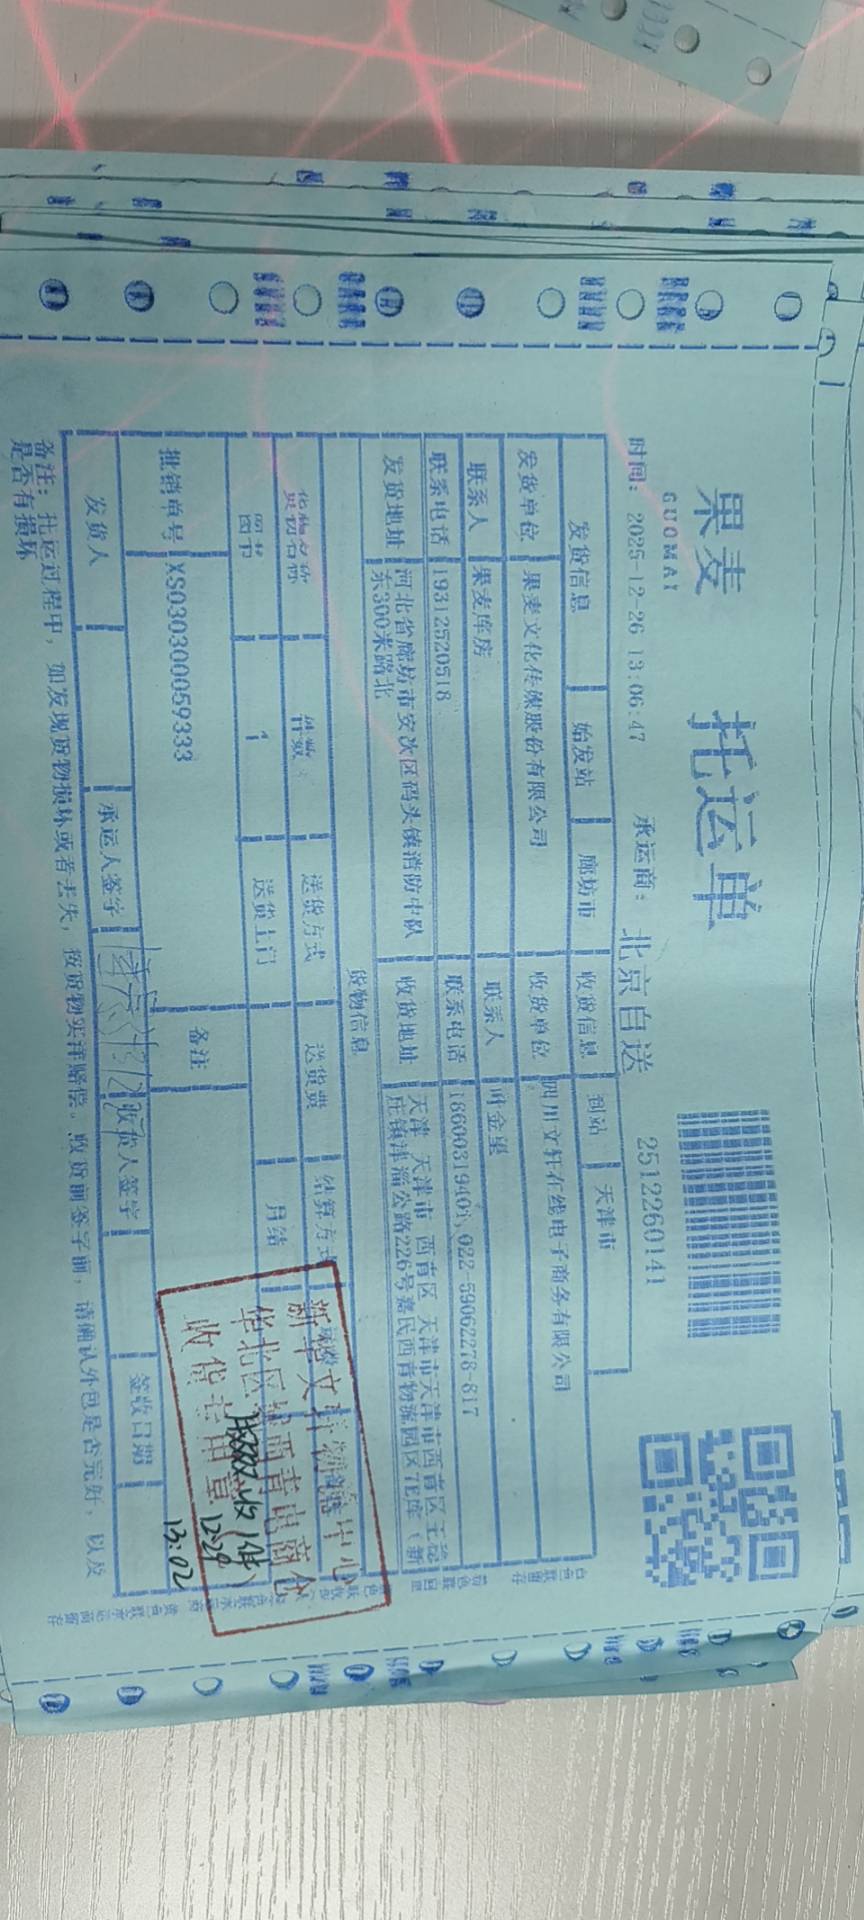 果麦
GUOMAI
托运单
时间： 2025-12-26 13:06:47 承运商： 北京自送 2512260141
发货信息 始发站 廊坊市 收货信息 到站 天津市
发货单位 果麦文化传媒股份有限公司 收货单位 四川文轩在线电子商务有限公司
联系人 果麦库房 联系人 叶金星
联系电话 19312520518 联系电话 022-59062278-817
发货地址 河北省廊坊市安次区码头镇消防中队东300米路北 收货地址 天津 天津市 西青区 天津市天津市西青区王稳庄镇津淄公路226号嘉民西青物流园区7E库（新
货物信息
货物名称 件数 送货方式 送货费 结算方式
图书 1 送货上门 月结
批销单号 XS030300059333 备注
发货人 承运人签字 收货人签字 签收日期
备注：托运过程中，如发现货物损坏或者丢失，按货物实洋赔偿。收货前签字前，请确认外包是否完好，以及
是否有损坏
新华文轩物流中心
华北区域西青电商仓
收货专用章
12-29
13:02